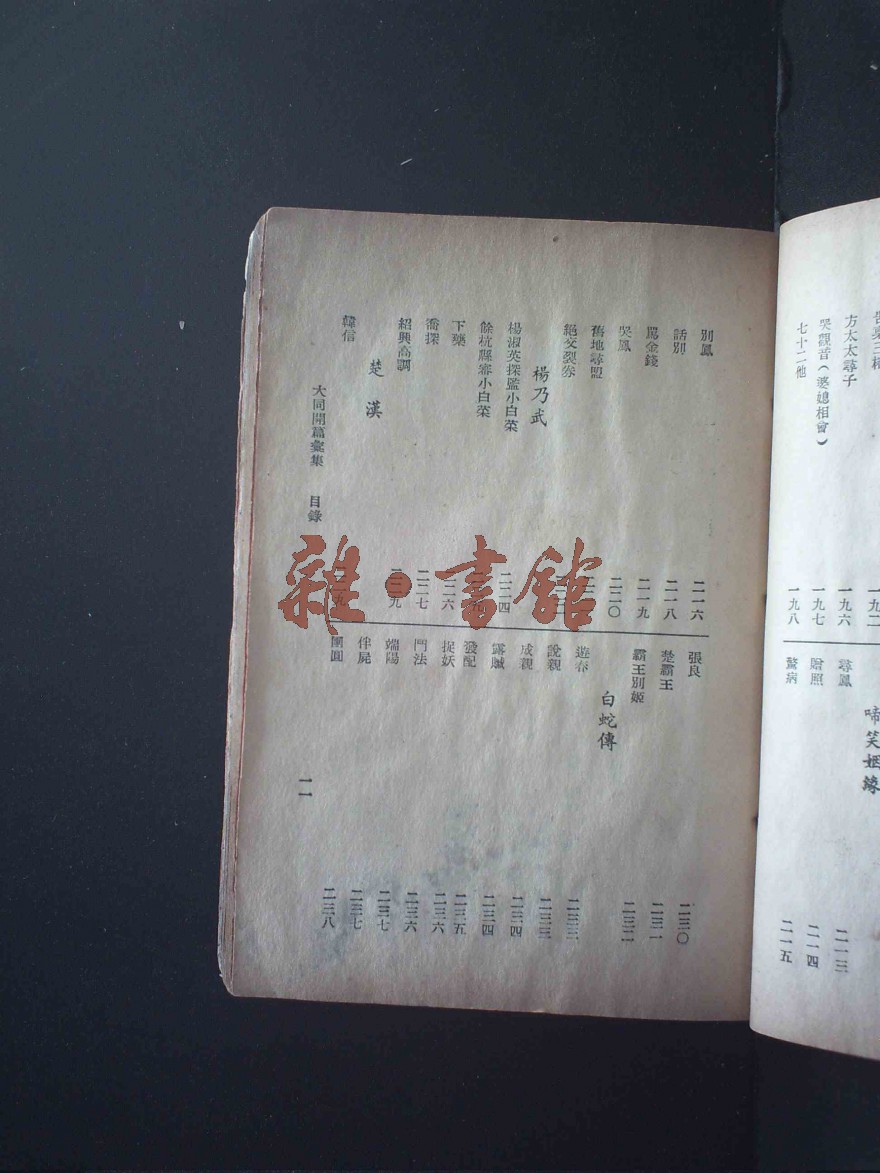 方太太尋子 一九六
哭觀音(婆媳相會) 一九七
七十二他 一九八
啼笑姻緣
尋鳳 二一三
贈照 二一四
驚病 二一五
別鳳 二一六
話別 二一八
罵金錢 二一九
哭鳳 二二〇
舊地尋盟
絕交裂券
楊乃武
楊淑英探監小白菜 二二四
餘杭縣審小白菜
下藥 二二六
喬探 二二七
紹興高調 二二九
楚漢
韓信 二二九
張良 二三〇
楚霸王 二三一
霸王別姬 二三二
白蛇傳
遊春 二三三
說親 二三三
成親 二三四
露贓 二三四
發配 二三五
捉妖 二三六
鬥法 二三六
端陽 二三七
伴屍 二三七
團圓 二三八
大同開篇彙集 目錄
一一
雜·書館